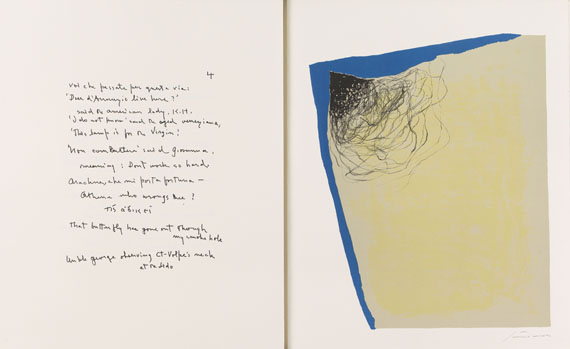 4
voi che passate per questa via:
'Does d'Annunzio live here?'
said the american lady, K.H.
'I do not know' said the aged veneziana,
'This lamp is for the Virgin.'
'Non combaattere' said giovanna,
meaning: Don't work so hard
Arachne, che mi porta fortuna —
Athena who wrongs thee?
τίς ἀδικεῖ
That butterfly has gone out through
my smoke hole
Unkle george observing Ct-Volpe's neck
at the Lido